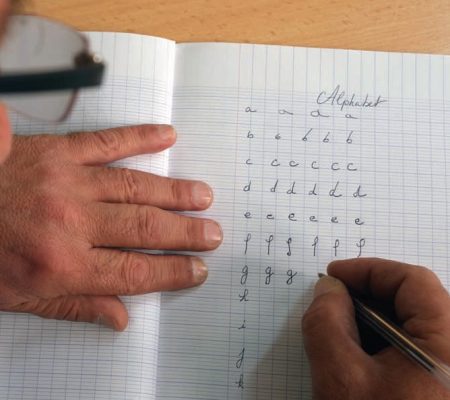 Alphabet
a a a a
b b b b b
c c c c c c
d d d d d d
e e e e e e
f f f f f f
g g g
h
i
j
k